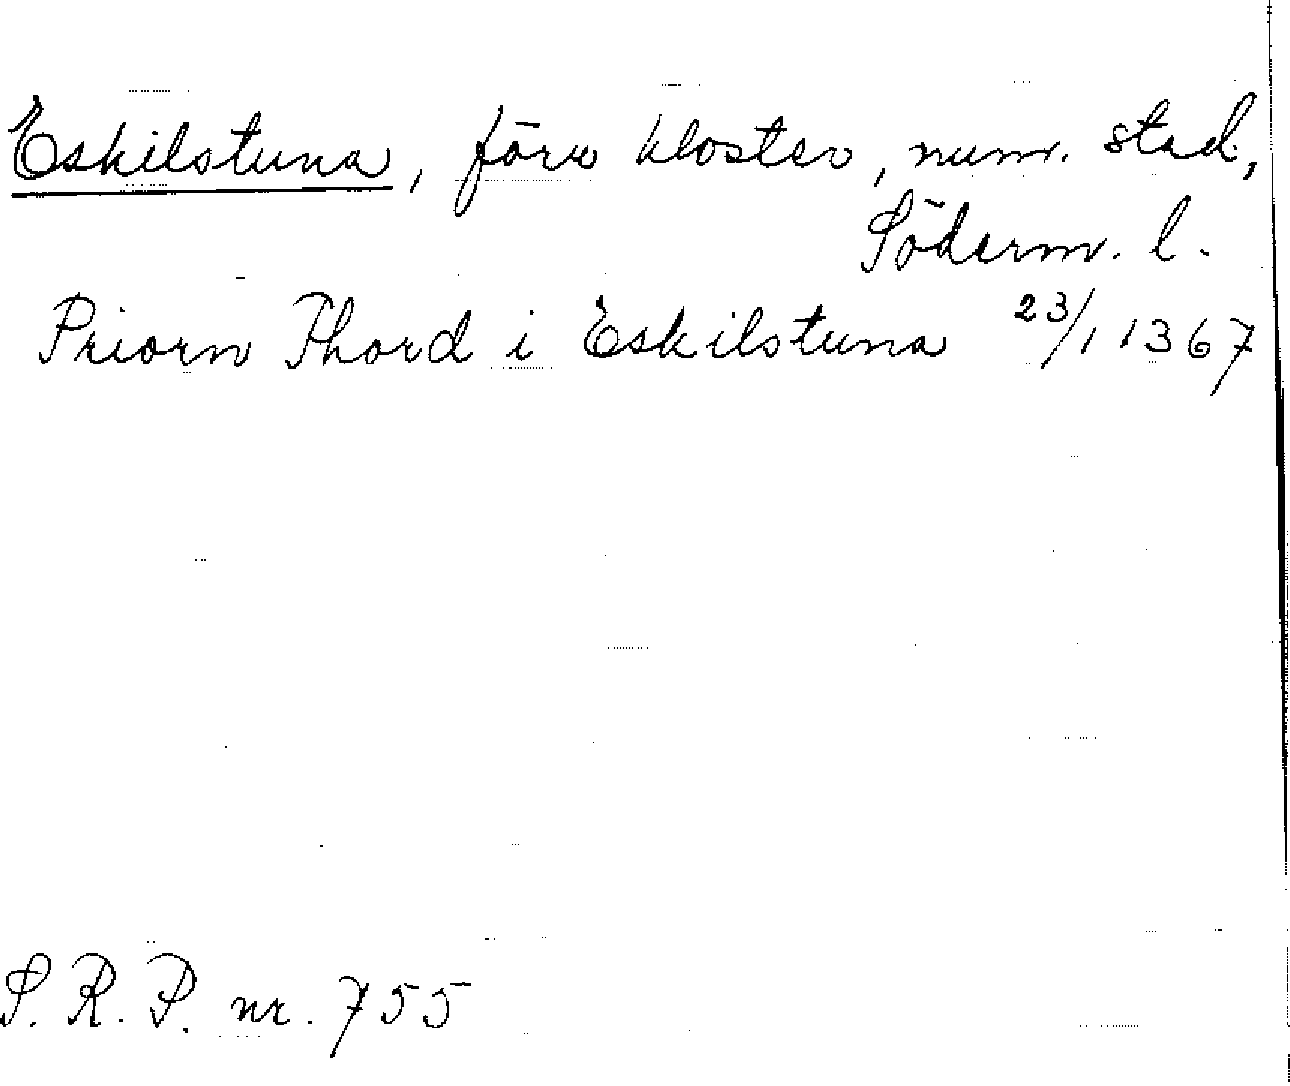 Eskilstuna, förr kloster, num. stad,
Söderm. l.
Priorn Thord i Eskilstuna 23/1 1367
S. R. P. nr. 755